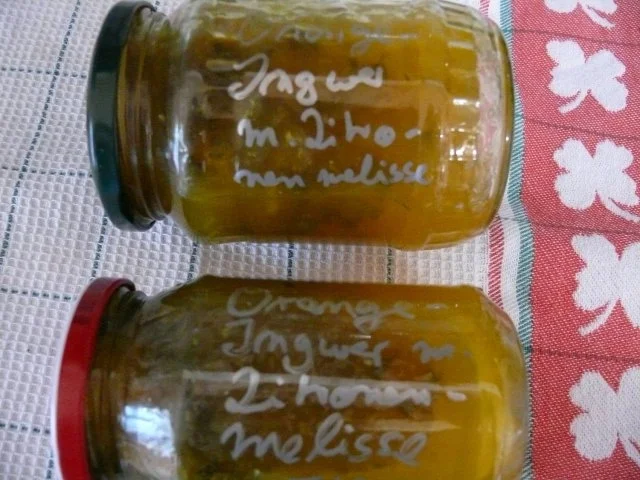 Orange-
Ingwer
m. Zitro-
nenmelisse
Orange-
Ingwer m.
Zitronen-
melisse